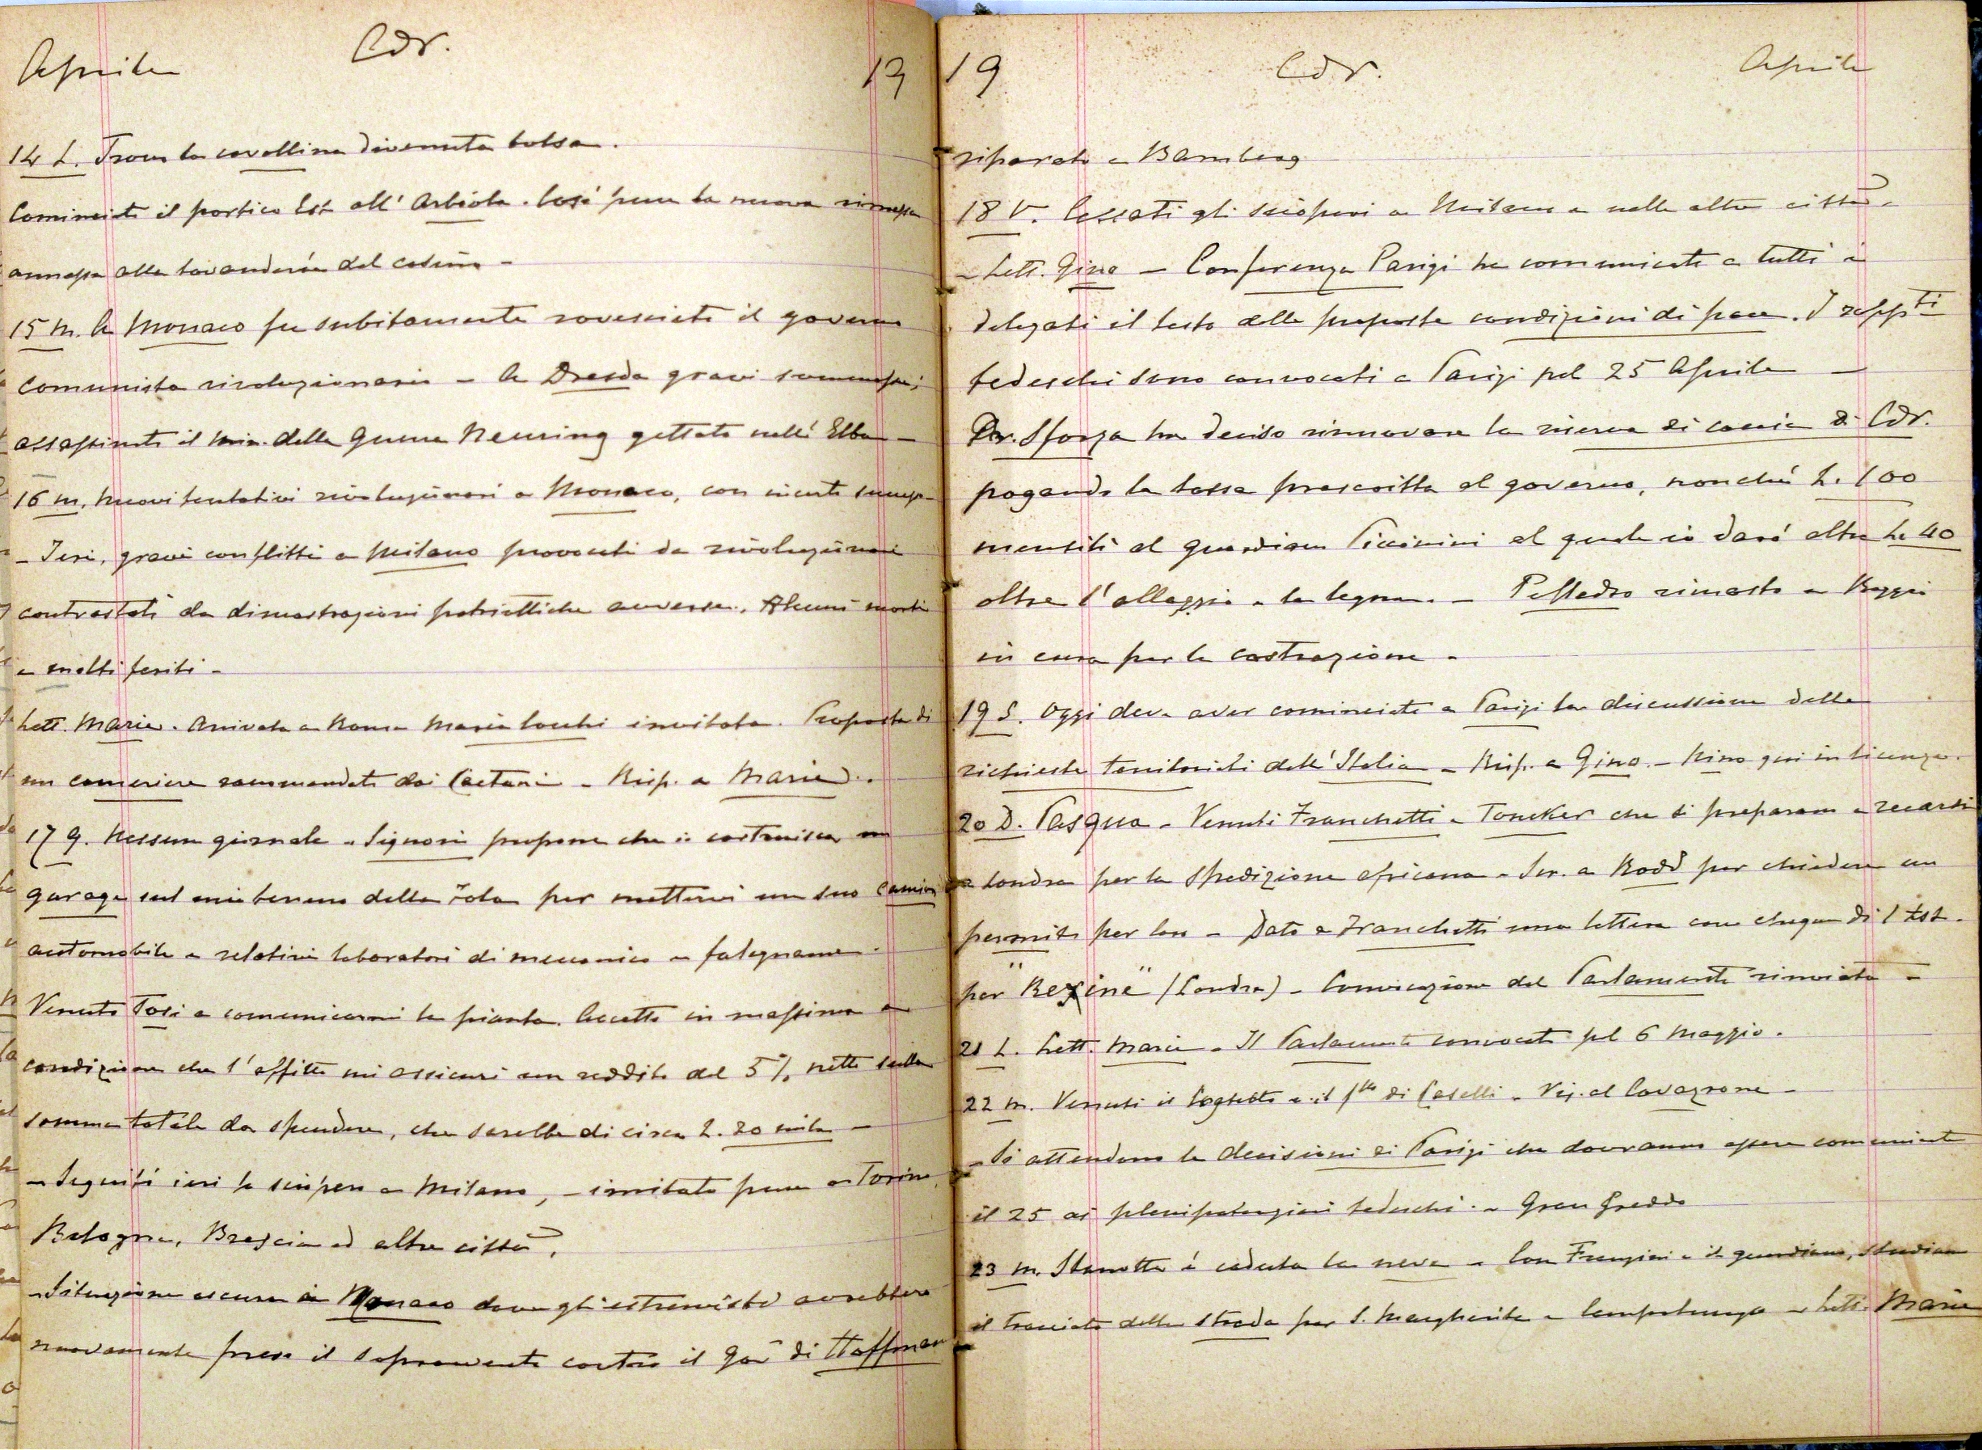 Aprile Cdr. 19
14 L. Trovo la cavallina divenuta bolsa.
Cominciato il portico Est all'Arbiola. Così pure la nuova rimessa
annessa alla lavanderia del casino -
15 M. A Monaco fu subitamente rovesciato il governo
comunista rivoluzionario - A Dresda gravi sommosse;
assassinato il min. della guerra Neuring gettato nell'Elba -
16 M. Nuovi tentativi rivoluzionari a Monaco, con incerto successo
- Ieri, gravi conflitti a Milano provocati da rivoluzionari
contrastati da dimostrazioni patriottiche avverse. Alcuni morti
e molti feriti -
Lett. Maria. Arrivata a Roma Maria Lochi invitata. Proposta di
un cameriere raccomandato dai Caetani - Risp. a Maria.
17 G. Nessun giornale - Signorini propone che io costruisca un
garage sul mio terreno della Fola per mettervi un suo camion
automobile e relativi laboratori di meccanico e falegname.
Venuto Tosi a comunicarmi la pianta. Accetto in massima a
condizione che l'affitto mi assicuri un reddito del 5% netto sulla
somma totale da spendere, che sarebbe di circa L. 20 mila -
- Seguiti ieri lo sciopero a Milano, - imitato pure a Torino,
Bologna, Brescia ed altre città.
- Situazione oscura a Monaco dove gli estremisti avrebbero
nuovamente preso il sopravvento contro il Gov. di Hoffman
19 Cdr. Aprile
riparato a Bamberg
18 V. Cessati gli scioperi a Milano e nelle altre città -
- Lett. Gino - Conferenza Parigi ha comunicato a tutti i
delegati il testo delle proposte condizioni di pace. I rapp.ti
tedeschi sono convocati a Parigi pel 25 Aprile -
Dr. Sforza ha deciso rinnovare la riserva di caccia di Cdr.
pagando la tassa prescritta al governo, nonché L. 100
mensili al guardiano Piccinini al quale io darò altre L. 40
oltre l'alloggio e la legna. - Puledro rimasto a Reggio
in cura per la castrazione -
19 S. Oggi deve aver cominciato a Parigi la discussione delle
richieste territoriali dell'Italia - Risp. a Gino. - Nino qui in licenza.
20 D. Pasqua - Venuti Franchetti e Toncker che si preparano a recarsi
a Londra per la spedizione africana - Scr. a Rodd per chiedere un
permesso per loro - Dato a Franchetti una lettera con cheque di 1 Lst.
per "Rexine" (Londra) - Convocazione del Parlamento rinviata -
21 L. Lett. Maria - Il Parlamento convocato pel 6 Maggio.
22 M. Venuti il e il di Caselli - Vis. al Cavazzone -
- Si attendono le decisioni di Parigi che dovranno essere comunicate
il 25 ai plenipotenziari tedeschi. - Gran freddo
23 M. Stanotte è caduta la neve - Con Franzini e il guardiano, studiato
il tracciato della strada per S. Margherita e - Lett. Maria